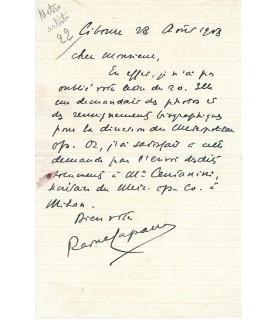 Metro
artistes
22
Ciboure 23 Août 1913
cher Monsieur,
En effet, j'ai pas
oublié votre du 20. Elle
me demandait des photos et
des renseignements biographiques
pour la direction du Metropolitan
op. Or, j'ai satisfait à cette
demande par l'envoi desdits
documents à Mr Centanini,
du Met. op. Co. à
Milan.
Bien votre